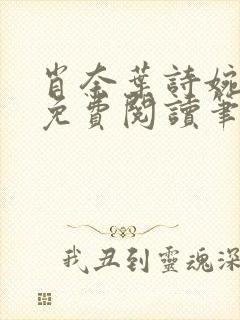 肖奈葉詩婉
免費閱讀筆
我丑到靈魂深